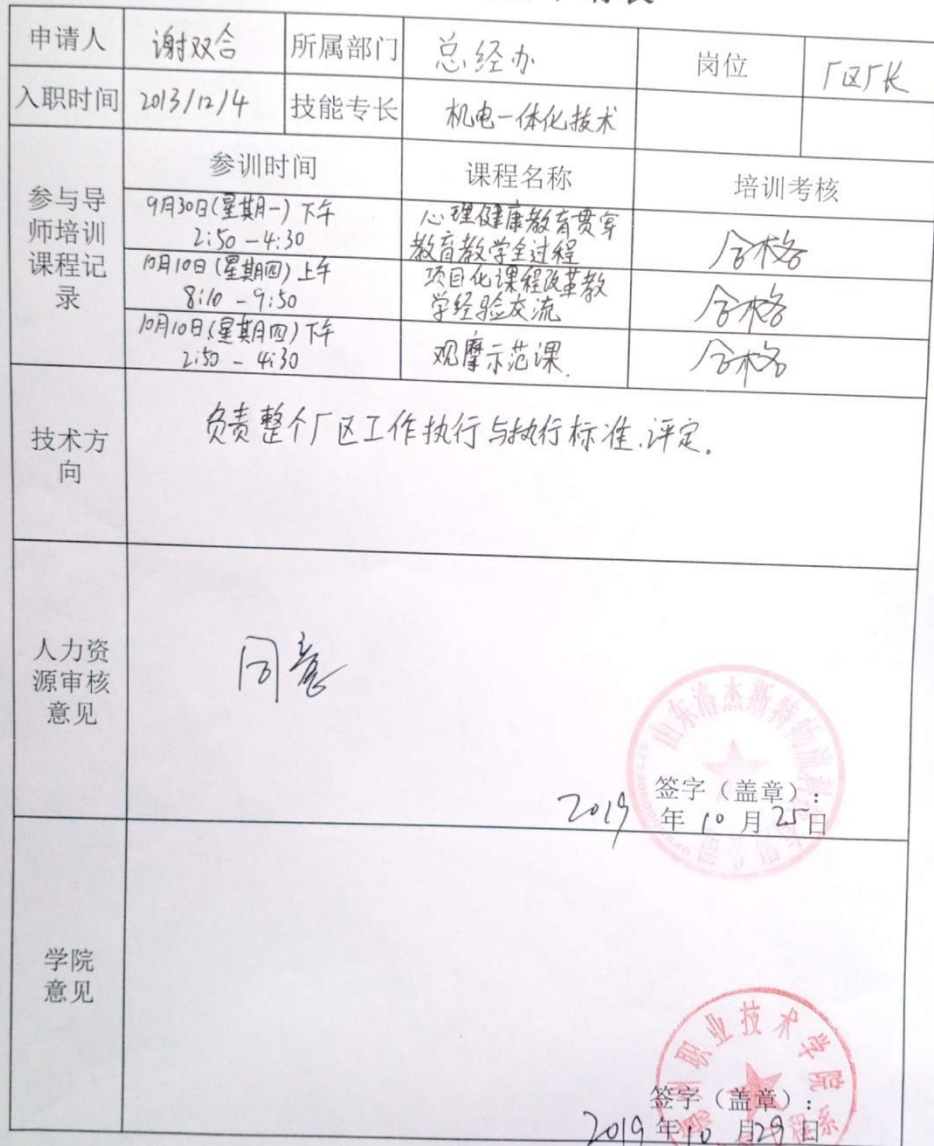 申请人 谢双合 所属部门 总经办 岗位 厂区厂长
入职时间 2013/12/4 技能专长 机电一体化技术
参与导
师培训
课程记
录
参训时间 课程名称 培训考核
9月30日(星期一)下午
2:50-4:30
心理健康教育贯穿
教育教学全过程
合格
10月10日(星期四)上午
8:10-9:50
项目化课程改革教
学经验交流
合格
10月10日(星期四)下午
2:50-4:30
观摩示范课.
合格
技术方
向
负责整个厂区工作执行与执行标准.评定.
人力资
源审核
意见
同意
山东洛杰斯特物流科技有限公司
签字(盖章):
2019年10月25日
学院
意见
州职业技术学院
签字(盖章):
2019年10月29日